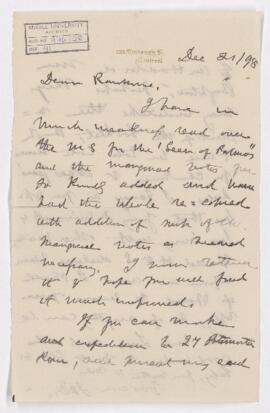 McGILL UNIVERSITY
ARCHIVES
ACC. NO.
REF.
Montreal
Dec 21/98
Dear Rankine,
I have in
much weakness read over
the MS for the "Seer of Patmos"
and the marginal notes you
so kindly added and have
had the whole re=copied
with addition of such of the
marginal notes as seemed
necessary. I now return
it & hope you will find
it much improved.
If you can make
an expedition to 27 Paternoster
Row, and present my card